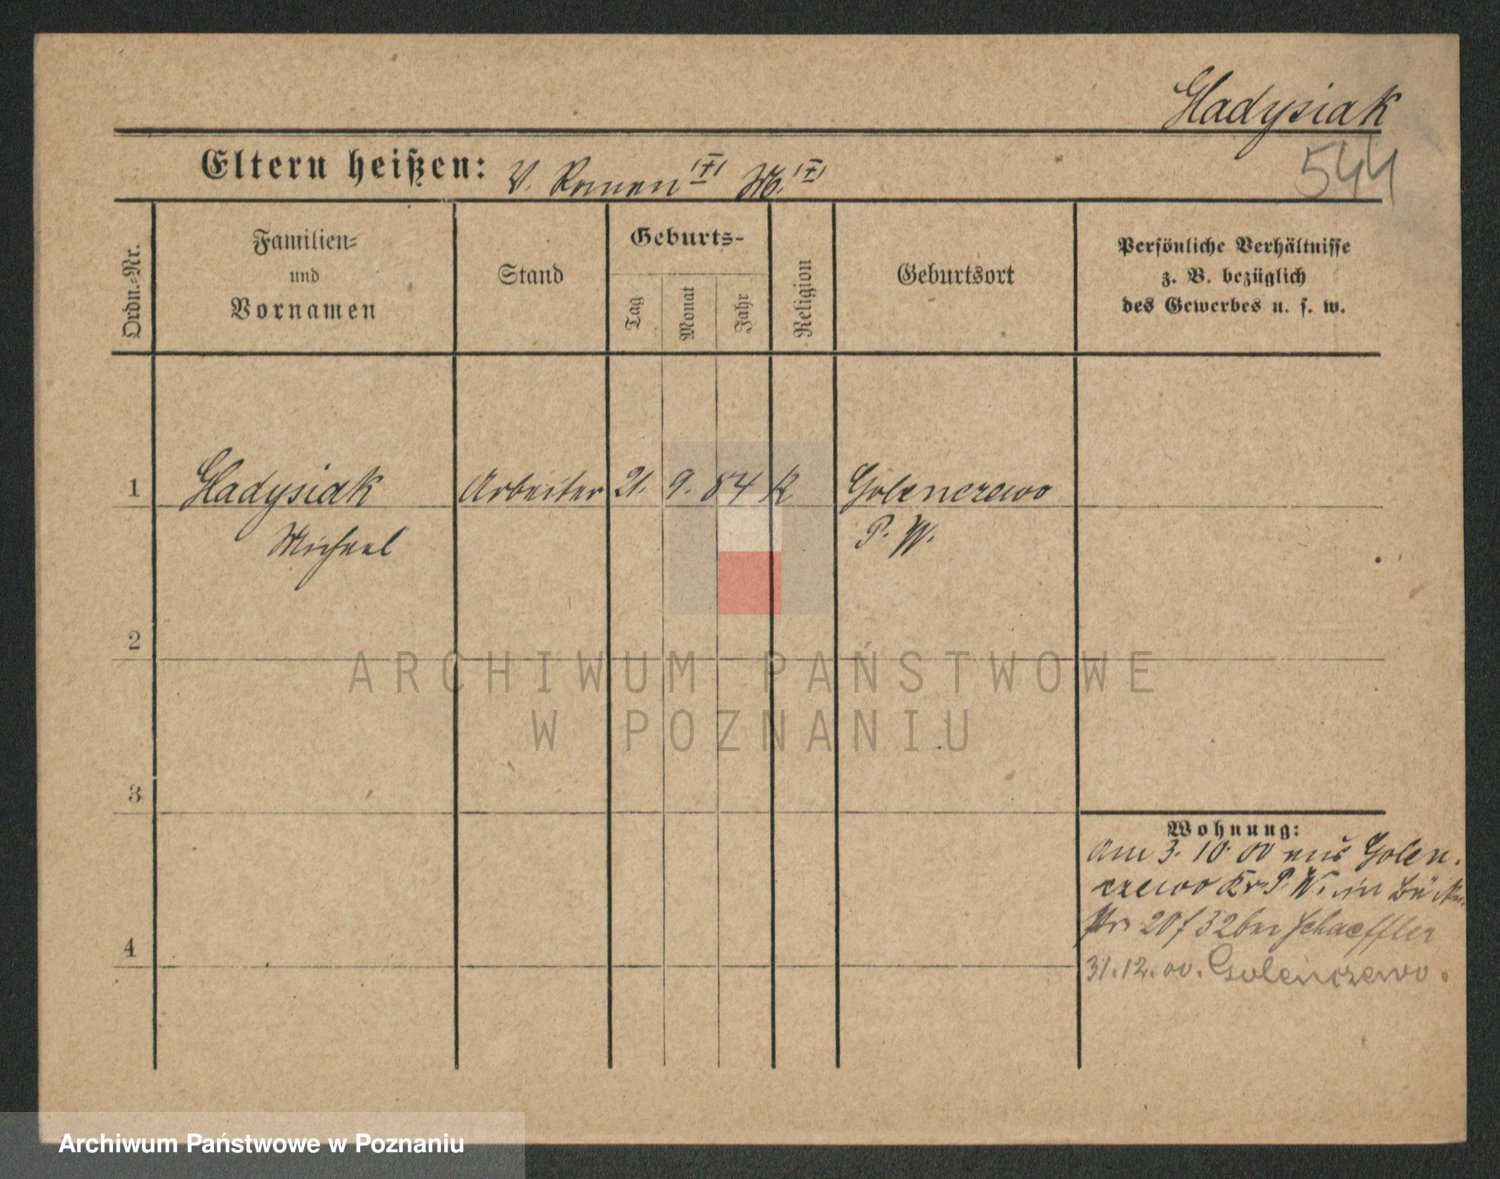 Gladysiak
544
Eltern heißen: V. Roman M.
Ordn.-Nr.
Familien-
und
Vornamen
Stand
Geburts-
Tag
Monat
Jahr
Religion
Geburtsort
Persönliche Verhältnisse
z. B. bezüglich
des Gewerbes u. s. w.
1 Gladysiak Arbeiter 21. 9. 84 K Golenczewo
Michael P. W.
2
3
4
Wohnung:
Am 3. 10. 00 aus Golen-
czewo Kr. P. W. in
20 / 32 bei Schaeffler
31.12.00. Golenczewo.
ARCHIWUM PAŃSTWOWE
W POZNANIU
Archiwum Państwowe w Poznaniu